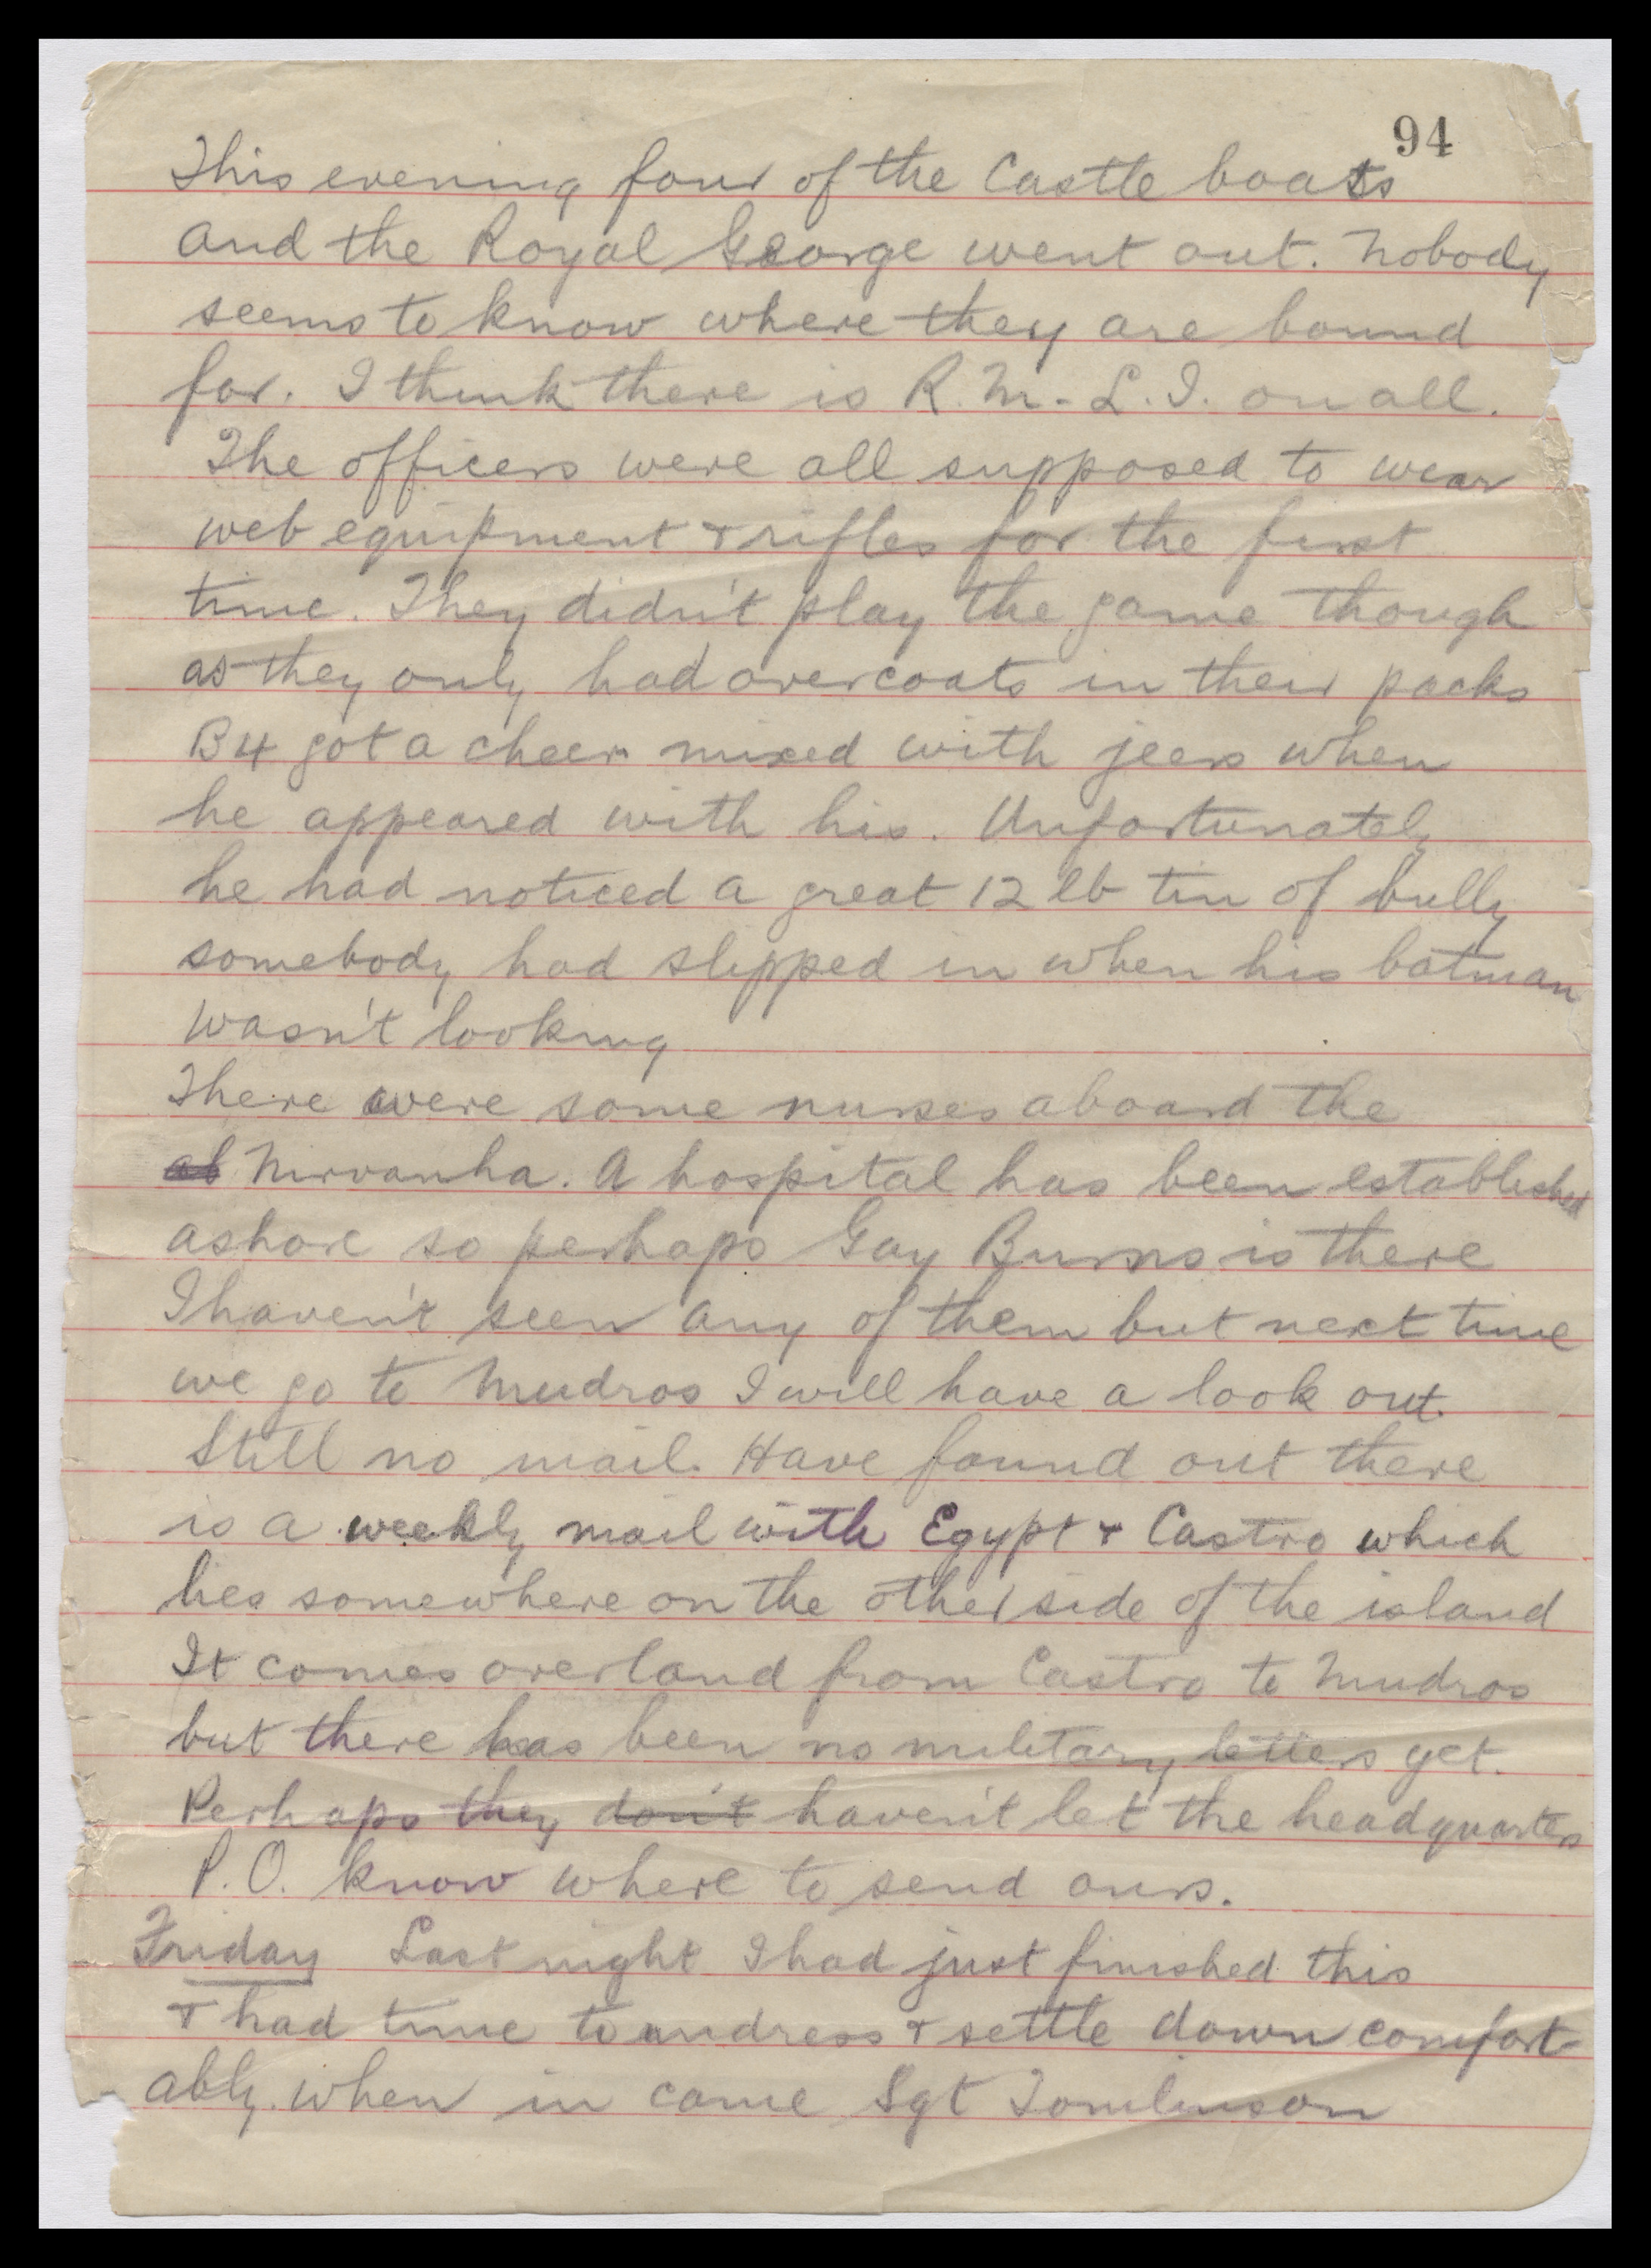 94
This evening four of the Castle boats
and the Royal George went out. Nobody
seems to know where they are bound
for. I think there is R.M.L.I. on all.
The officers were all supposed to wear
web equipment & rifles for the first
time. They didn't play the game though
as they only had overcoats in their packs
B4 got a cheer mixed with jeers when
he appeared with his. Unfortunately
he had noticed a great 12 lb tin of bully
somebody had slipped in when his batman
wasn't looking
There were some nurses aboard the
Nirvanha. A hospital has been established
ashore so perhaps Gay Burns is there
I haven't seen any of them but next time
we go to Mudros I will have a look out.
Still no mail. Have found out there
is a weekly mail with Egypt & Castro which
lies somewhere on the other side of the island
It comes overland from Castro to Mudros
but there has been no military letters yet.
Perhaps they don't haven't let the headquarters
P.O. know where to send ours.
Friday Last night I had just finished this
& had time to undress & settle down comfort-
ably when in came Sgt Tomlinson